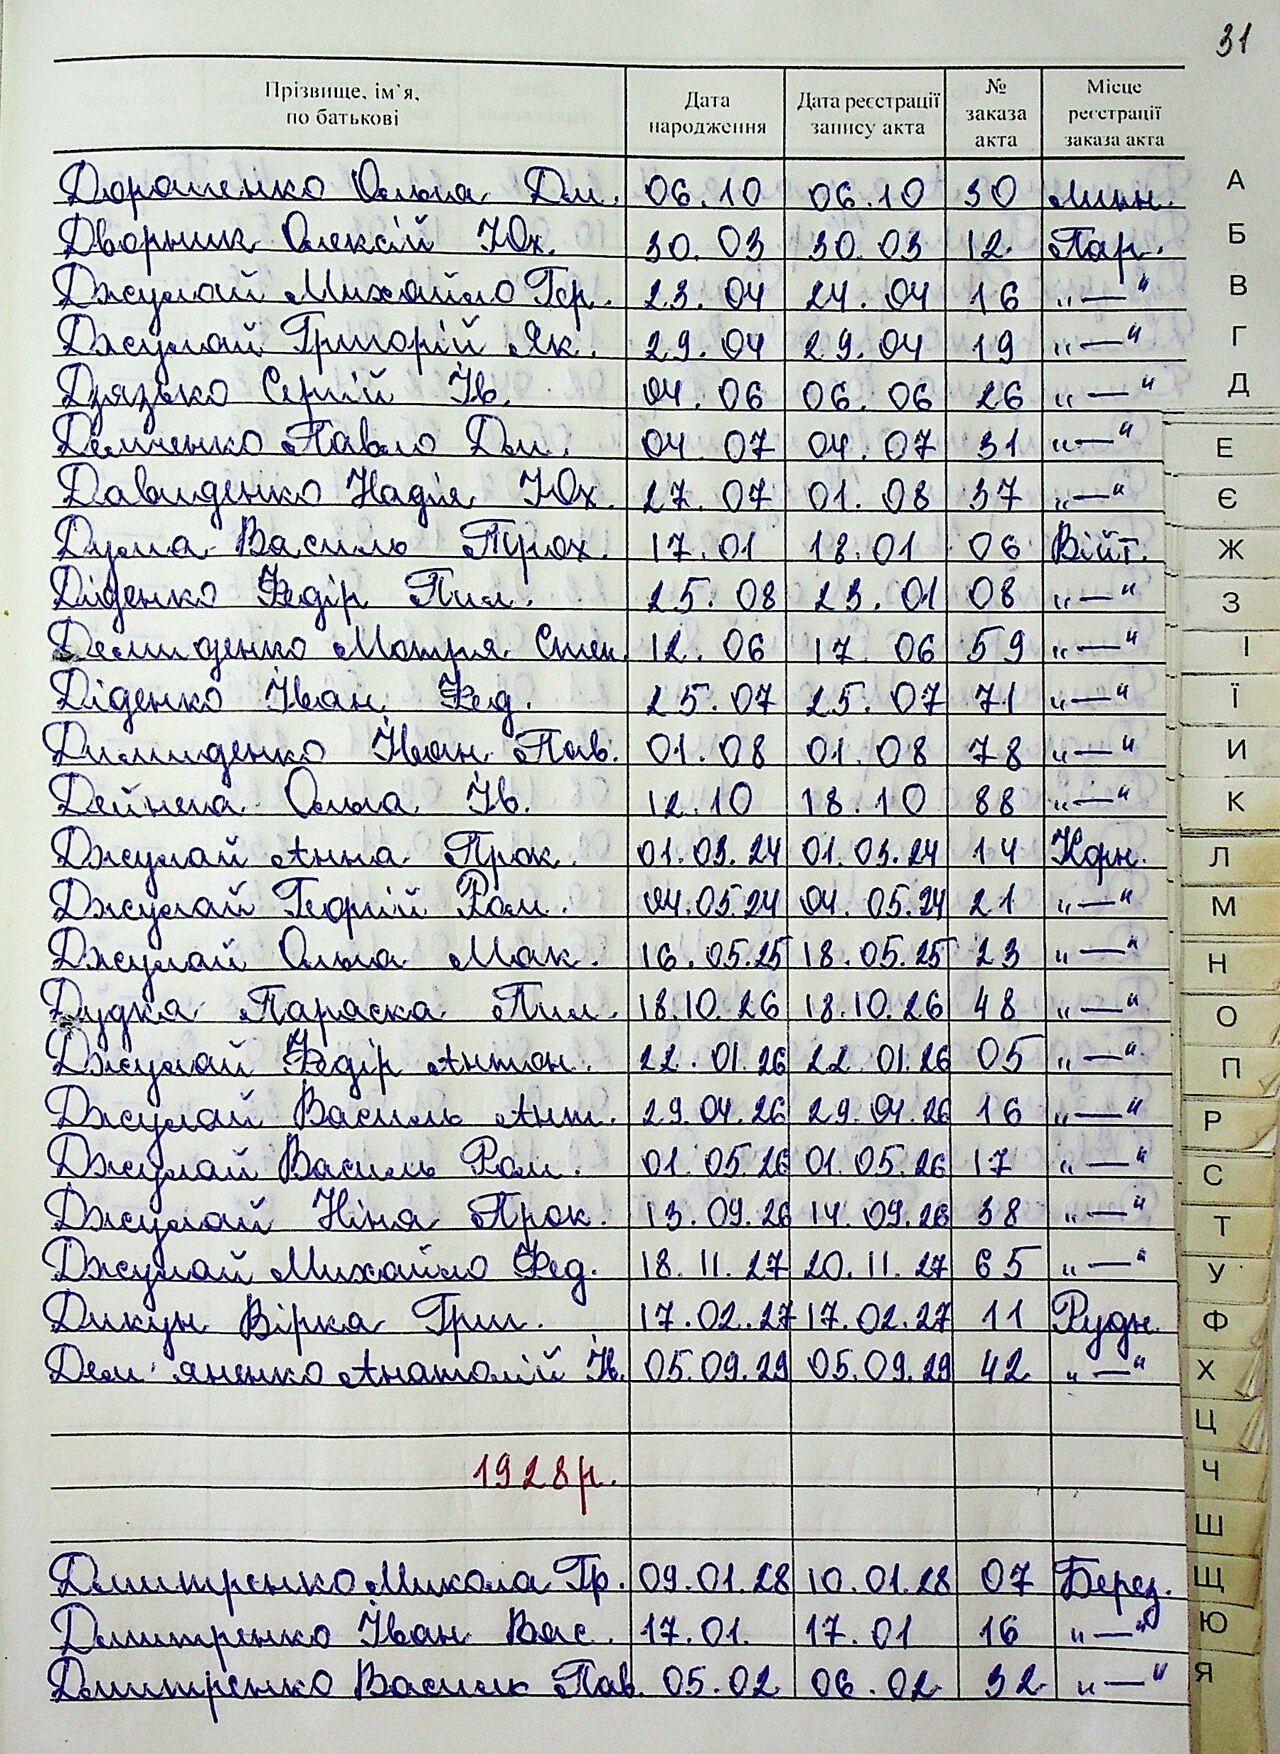 31
Прізвище, ім'я, по батькові | Дата народження | Дата реєстрації запису акта | № заказа акта | Місце реєстрації заказа акта
Дорошенко Ольга Дм. 06.10 06.10 30 Линн.
Дворник Олексій Юх. 30.03 30.03 12. Пар.
Джулай Михайло Гр. 23.04 24.04 16 „—"
Джулай Григорій Як. 29.04 29.04 19 „—"
Дзязько Сергій Ів. 04.06 06.06 26 „—"
Демченко Павло Дм. 04.07 04.07 31 „—"
Давиденко Надія Юх. 27.07 01.08 37 „—"
Дума Василь Прох. 17.01 18.01 06 Війт.
Діденко Федір Пил. 25.08 23.01 08 „—"
Демиденко Мотря Степ. 12.06 17.06 59 „—"
Діденко Іван Фед. 25.07 25.07 71 „—"
Димиденко Іван Пав. 01.08 01.08 78 „—"
Дейнека Ольга Ів. 12.10 18.10 88 „—"
Джулай Анна Прок. 01.03.24 01.03.24 14 Корн.
Джулай Георгій Ром. 04.05.24 04.05.24 21 „—"
Джулай Ольга Мак. 16.05.25 18.05.25 23 „—"
Дудка Параска Пил. 18.10.26 18.10.26 48 „—"
Джулай Федір Антон. 22.01.26 22.01.26 05 „—"
Джулай Василь Ант. 29.04.26 29.04.26 16 „—"
Джулай Василь Ром. 01.05.26 01.05.26 17 „—"
Джулай Ніна Прок. 13.09.26 14.09.26 38 „—"
Джулай Михайло Фед. 18.11.27 20.11.27 65 „—"
Дикун Вірка Гри. 17.02.27 17.02.27 11 Рудн.
Дем'яненко Анатолій Ів. 05.09.29 05.09.29 42 „—"
1928р.
Дмитренко Микола Гр. 09.01.28 10.01.28 07 Берез.
Дмитренко Іван Вас. 17.01. 17.01 16 „—"
Дмитренко Василь Пав. 05.02 06.02 32 „—"
А
Б
В
Г
Д
Е
Є
Ж
З
І
Ї
И
К
Л
М
Н
О
П
Р
С
Т
У
Ф
Х
Ц
Ч
Ш
Щ
Ю
Я